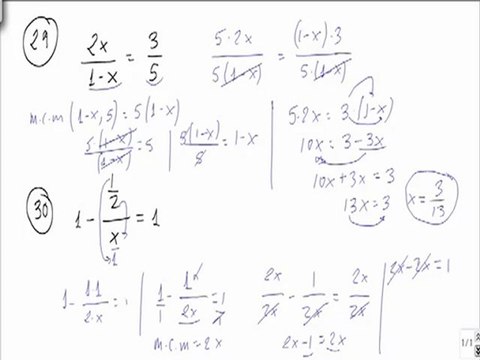 29
2x/(1-x) = 3/5
5·2x/5(1-x) = (1-x)·3/5(1-x)
m.c.m (1-x, 5) = 5(1-x)
5(1-x)/(1-x) = 5 | 5(1-x)/5 = 1-x
5·2x = 3(1-x)
10x = 3-3x
10x+3x = 3
13x = 3
x = 3/13
30
1 - (1/2)/(x/1) = 1
1 - 1·1/2·x = 1
1/1 - 1/2x = 1/1
m.c.m = 2x
2x/2x - 1/2x = 2x/2x
2x-1 = 2x
2x-2x = 1
1/1